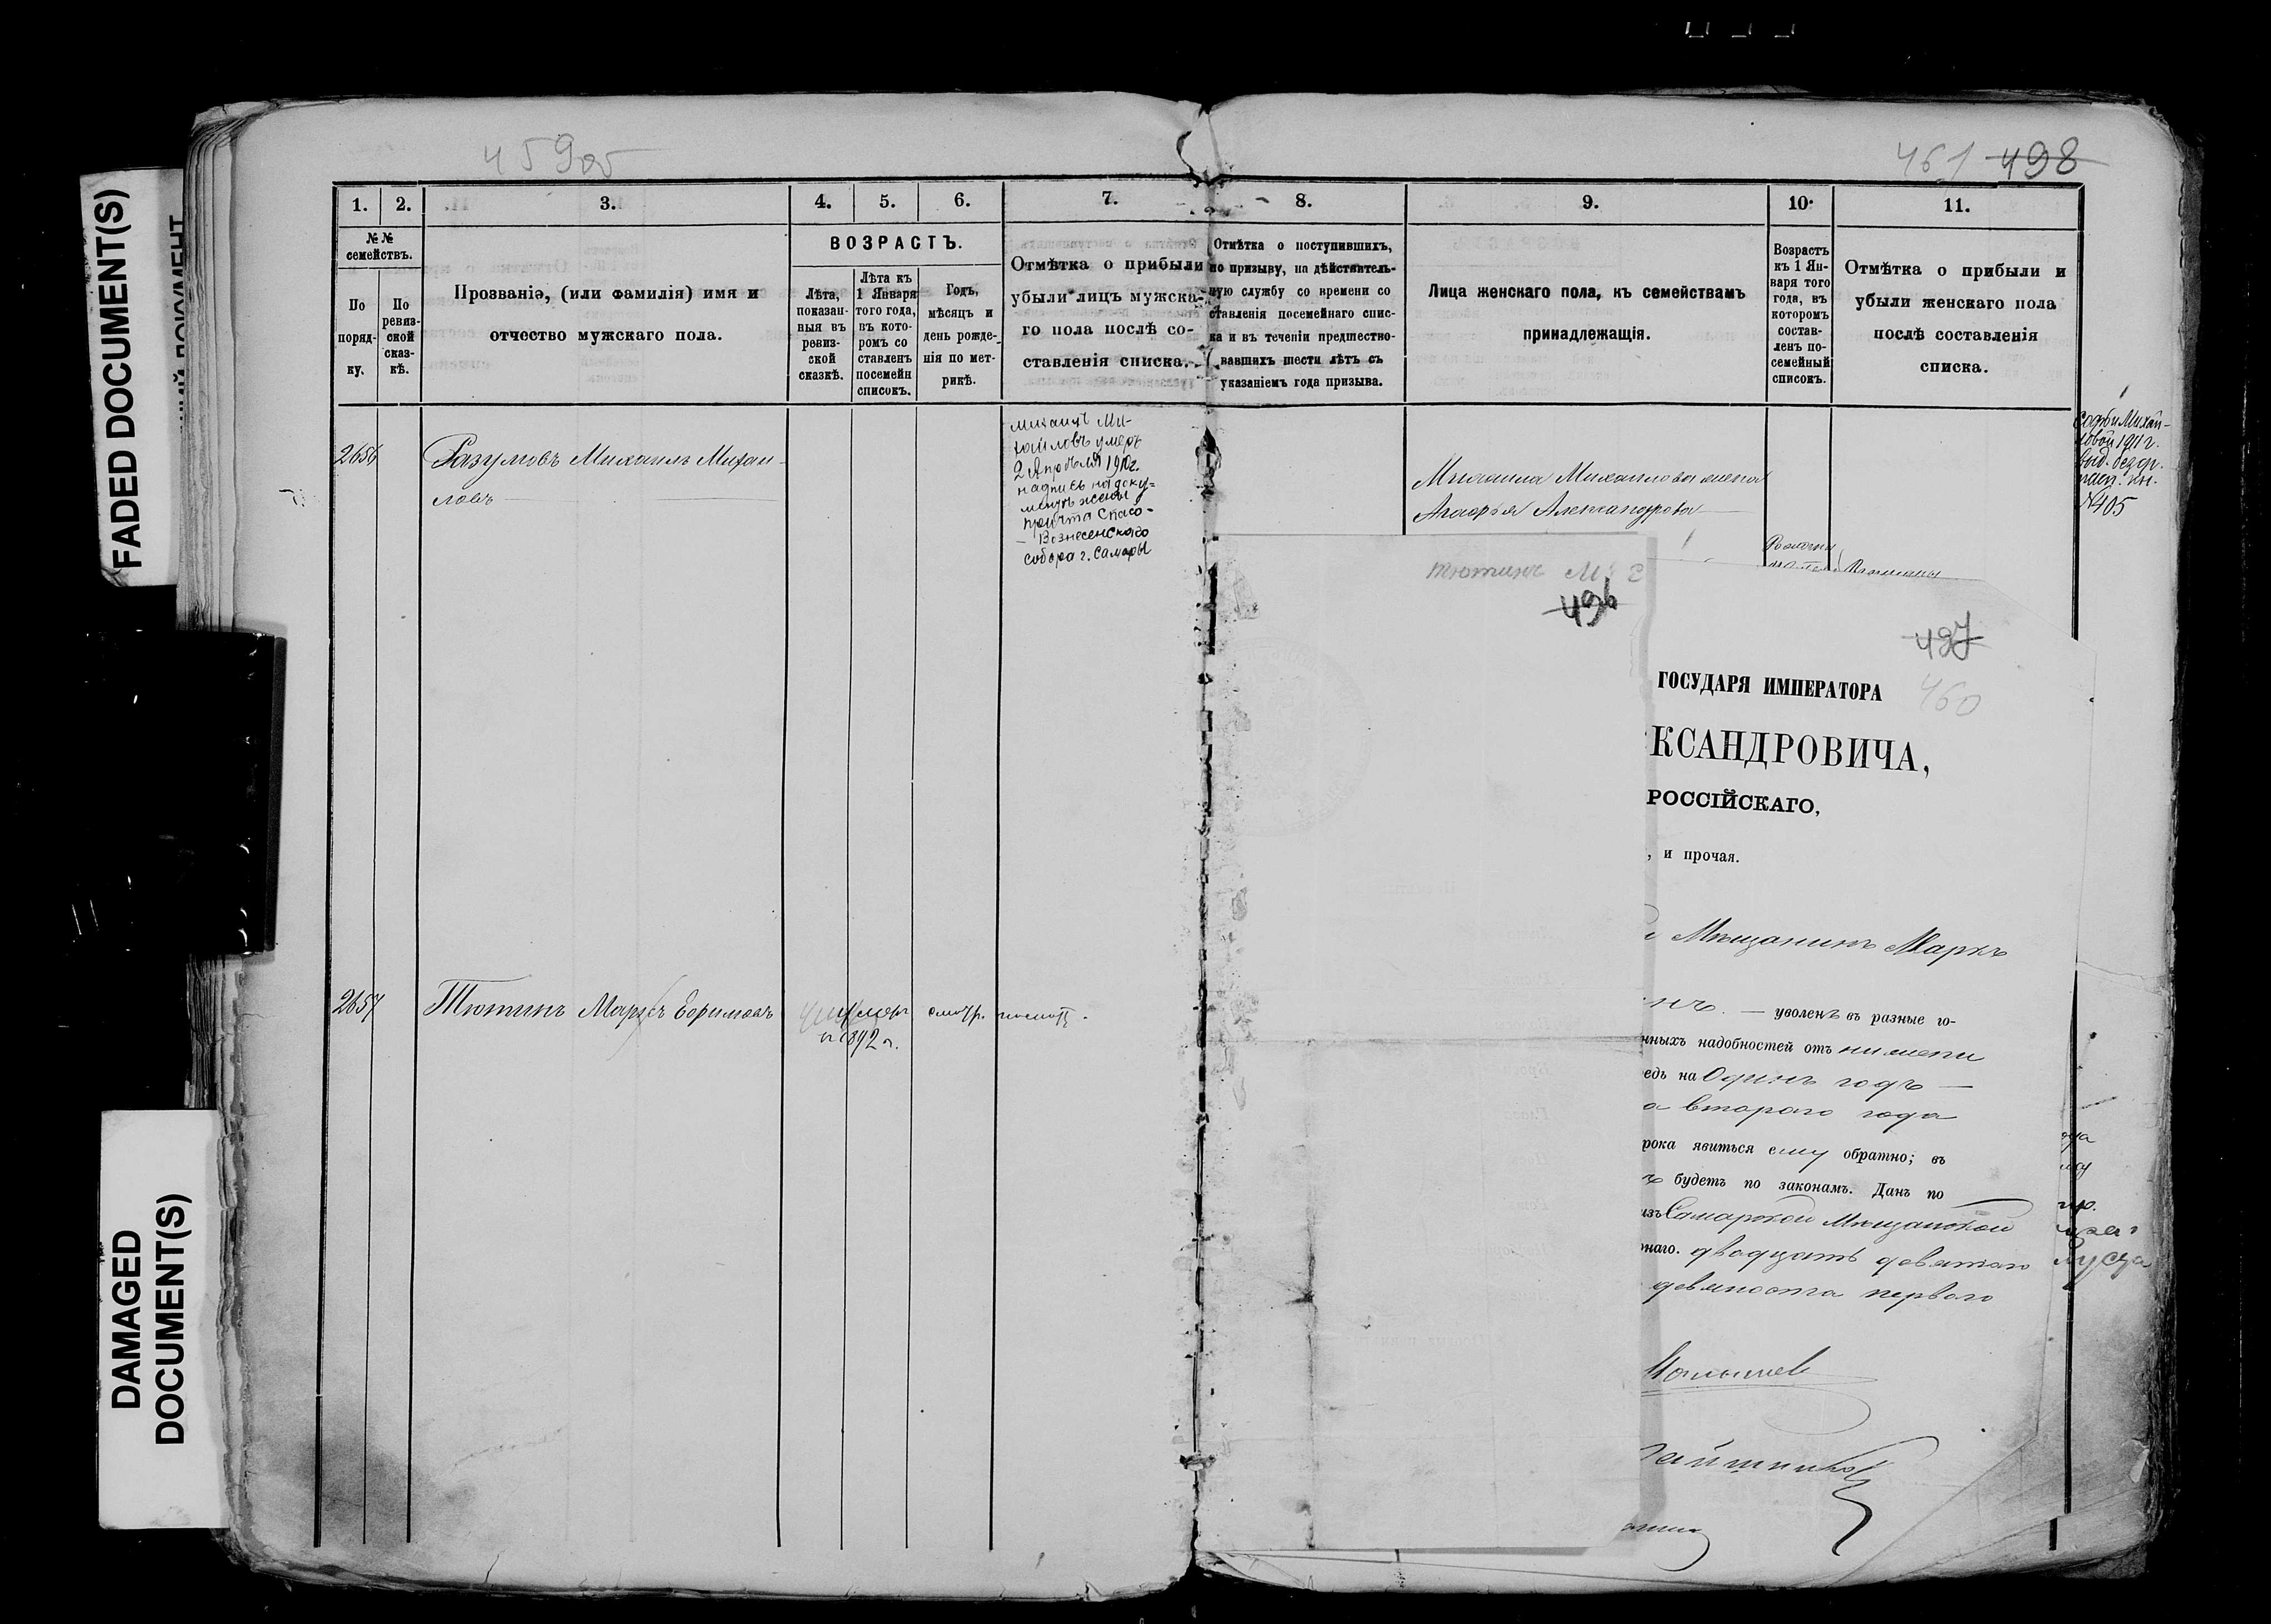 FADED DOCUMENT(S)
DAMAGED
DOCUMENT(S)
459об
461 498
1. 2. 3. 4. 5. 6. 7. 8. 9. 10. 11.
№№
семействъ.
По
поряд-
ку.
По
ревиз-
ской
сказ-
кѣ.
Прозваніе, (или фамилія) имя и
отчество мужскаго пола.
ВОЗРАСТЪ.
Лѣта,
показан-
ныя въ
ревиз-
ской
сказкѣ.
Лѣта къ
1 Января
того года,
въ кото-
ромъ со
ставленъ
посемейн
списокъ.
Годъ,
мѣсяцъ и
день рожде-
нія по мет-
рикѣ.
Отмѣтка о прибыли
убыли лицъ мужска-
го пола послѣ со-
ставленія списка.
Отмѣтка о поступившихъ,
по призыву, на дѣйствитель-
ную службу со времени со
ставленія посемейнаго спис-
ка и въ теченіи предшество-
вавшихъ шести лѣтъ съ
указаніемъ года призыва.
Лица женскаго пола, къ семействамъ
принадлежащія.
Возрастъ
къ 1 Ян-
варя того
года, въ
которомъ
состав-
ленъ по-
семейный
списокъ.
Отмѣтка о прибыли и
убыли женскаго пола
послѣ составленія
списка.
2656
Разумовъ Михаилъ Михаи-
ловъ
Михаилъ Ми-
хайловъ умеръ
2 Апрѣля 1910г.
надпись на доку-
ментѣ жены
причта Спасо-
Вознесенскаго
собора г. Самары
Михаила Михаилова жена
Агафья Александрова
Софьи Михай-
ловой 1911 г.
выд.
№405
2657
Тютинъ Маркъ Ефимовъ
умеръ
въ 1892 г.
смотр.
Тютинъ М
496
497
460
ГОСУДАРЯ ИМПЕРАТОРА
КСАНДРОВИЧА,
РОССІЙСКАГО,
, и прочая.
Мѣщанинъ Маркъ
нъ. — уволенъ въ разные го-
нныхъ надобностей отъ нижепи
едь на Одинъ годъ —
а втораго года
рока явиться ему обратно; въ
ъ будетъ по законамъ. Данъ по
изъ Самарской Мѣщанской
наго. двадцать девятаго
девяноста перваго